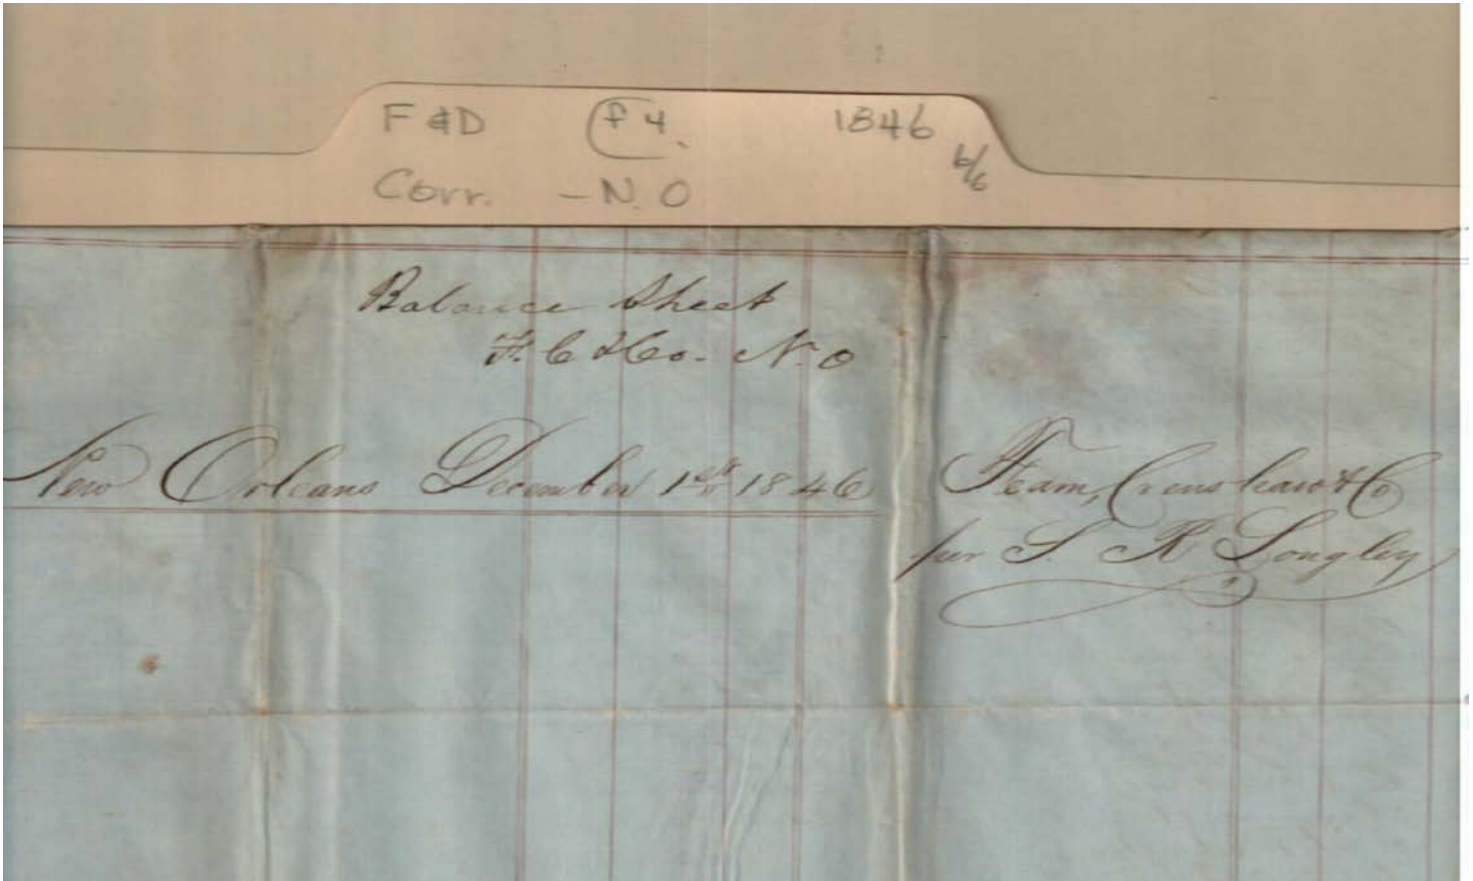 F & D (f 4. 1846
Corr. - N.O 6/6
Balance Sheet
F. C & Co. N. O
New Orleans December 1st 1846
Fearn, Crenshaw & Co
per S. R Longley